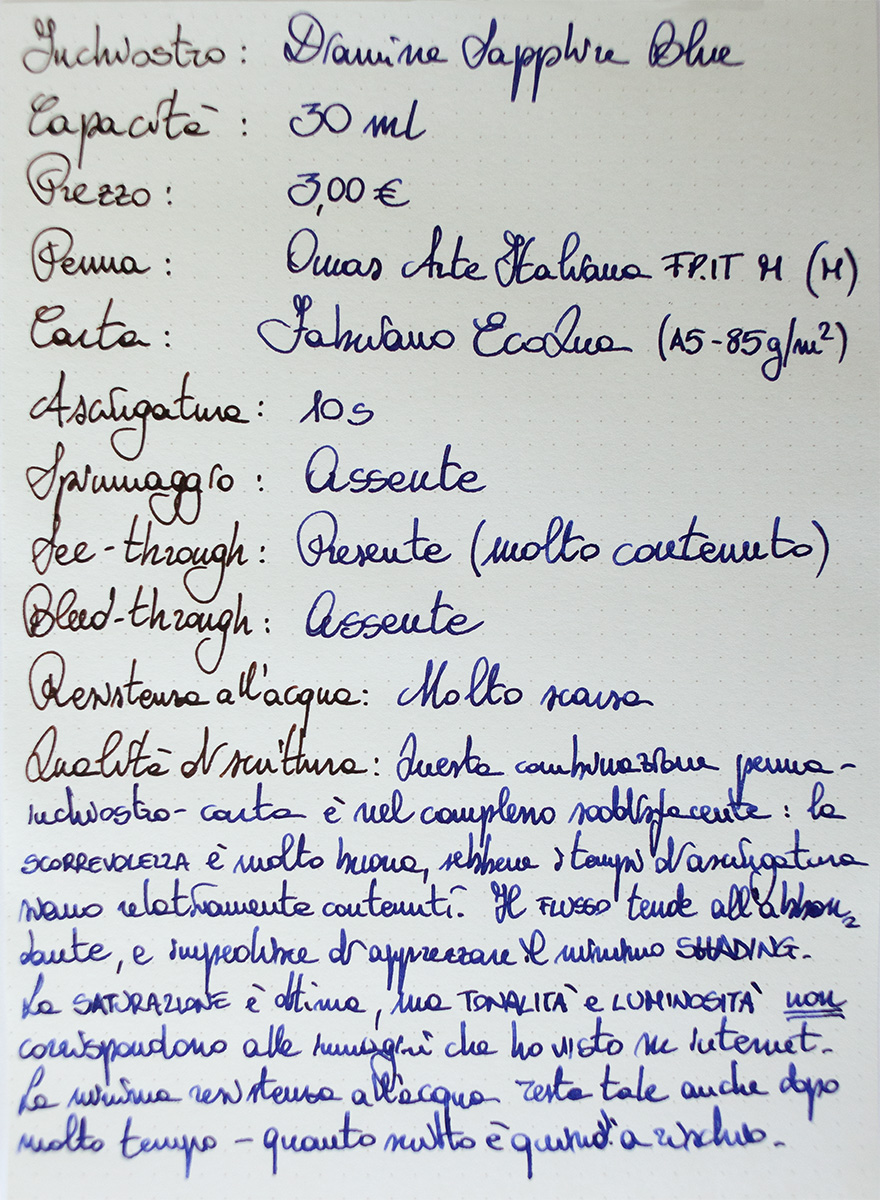 Inchiostro: Diamine Sapphire Blue
Capacità: 30 ml
Prezzo: 3,00 €
Penna: Omas Arte Italiana FP.IT M (M)
Carta: Fabriano EcoQua (A5-85g/m²)
Asciugatura: 10s
Spiumaggio: Assente
See-through: Presente (molto contenuto)
Bleed-through: Assente
Resistenza all'acqua: Molto scarsa
Qualità di scrittura: Questa combinazione penna-
inchiostro-carta è nel complesso soddisfacente: la
SCORREVOLEZZA è molto buona, sebbene i tempi d'asciugatura
siano relativamente contenuti. Il FLUSSO tende all'abbon=
dante, e impedisce di apprezzare il minimo SHADING.
La SATURAZIONE è ottima, ma TONALITÀ e LUMINOSITÀ non
corrispondono alle immagini che ho visto su internet.
La minima resistenza all'acqua resta tale anche dopo
molto tempo - quanto scritto è quindi a rischio.